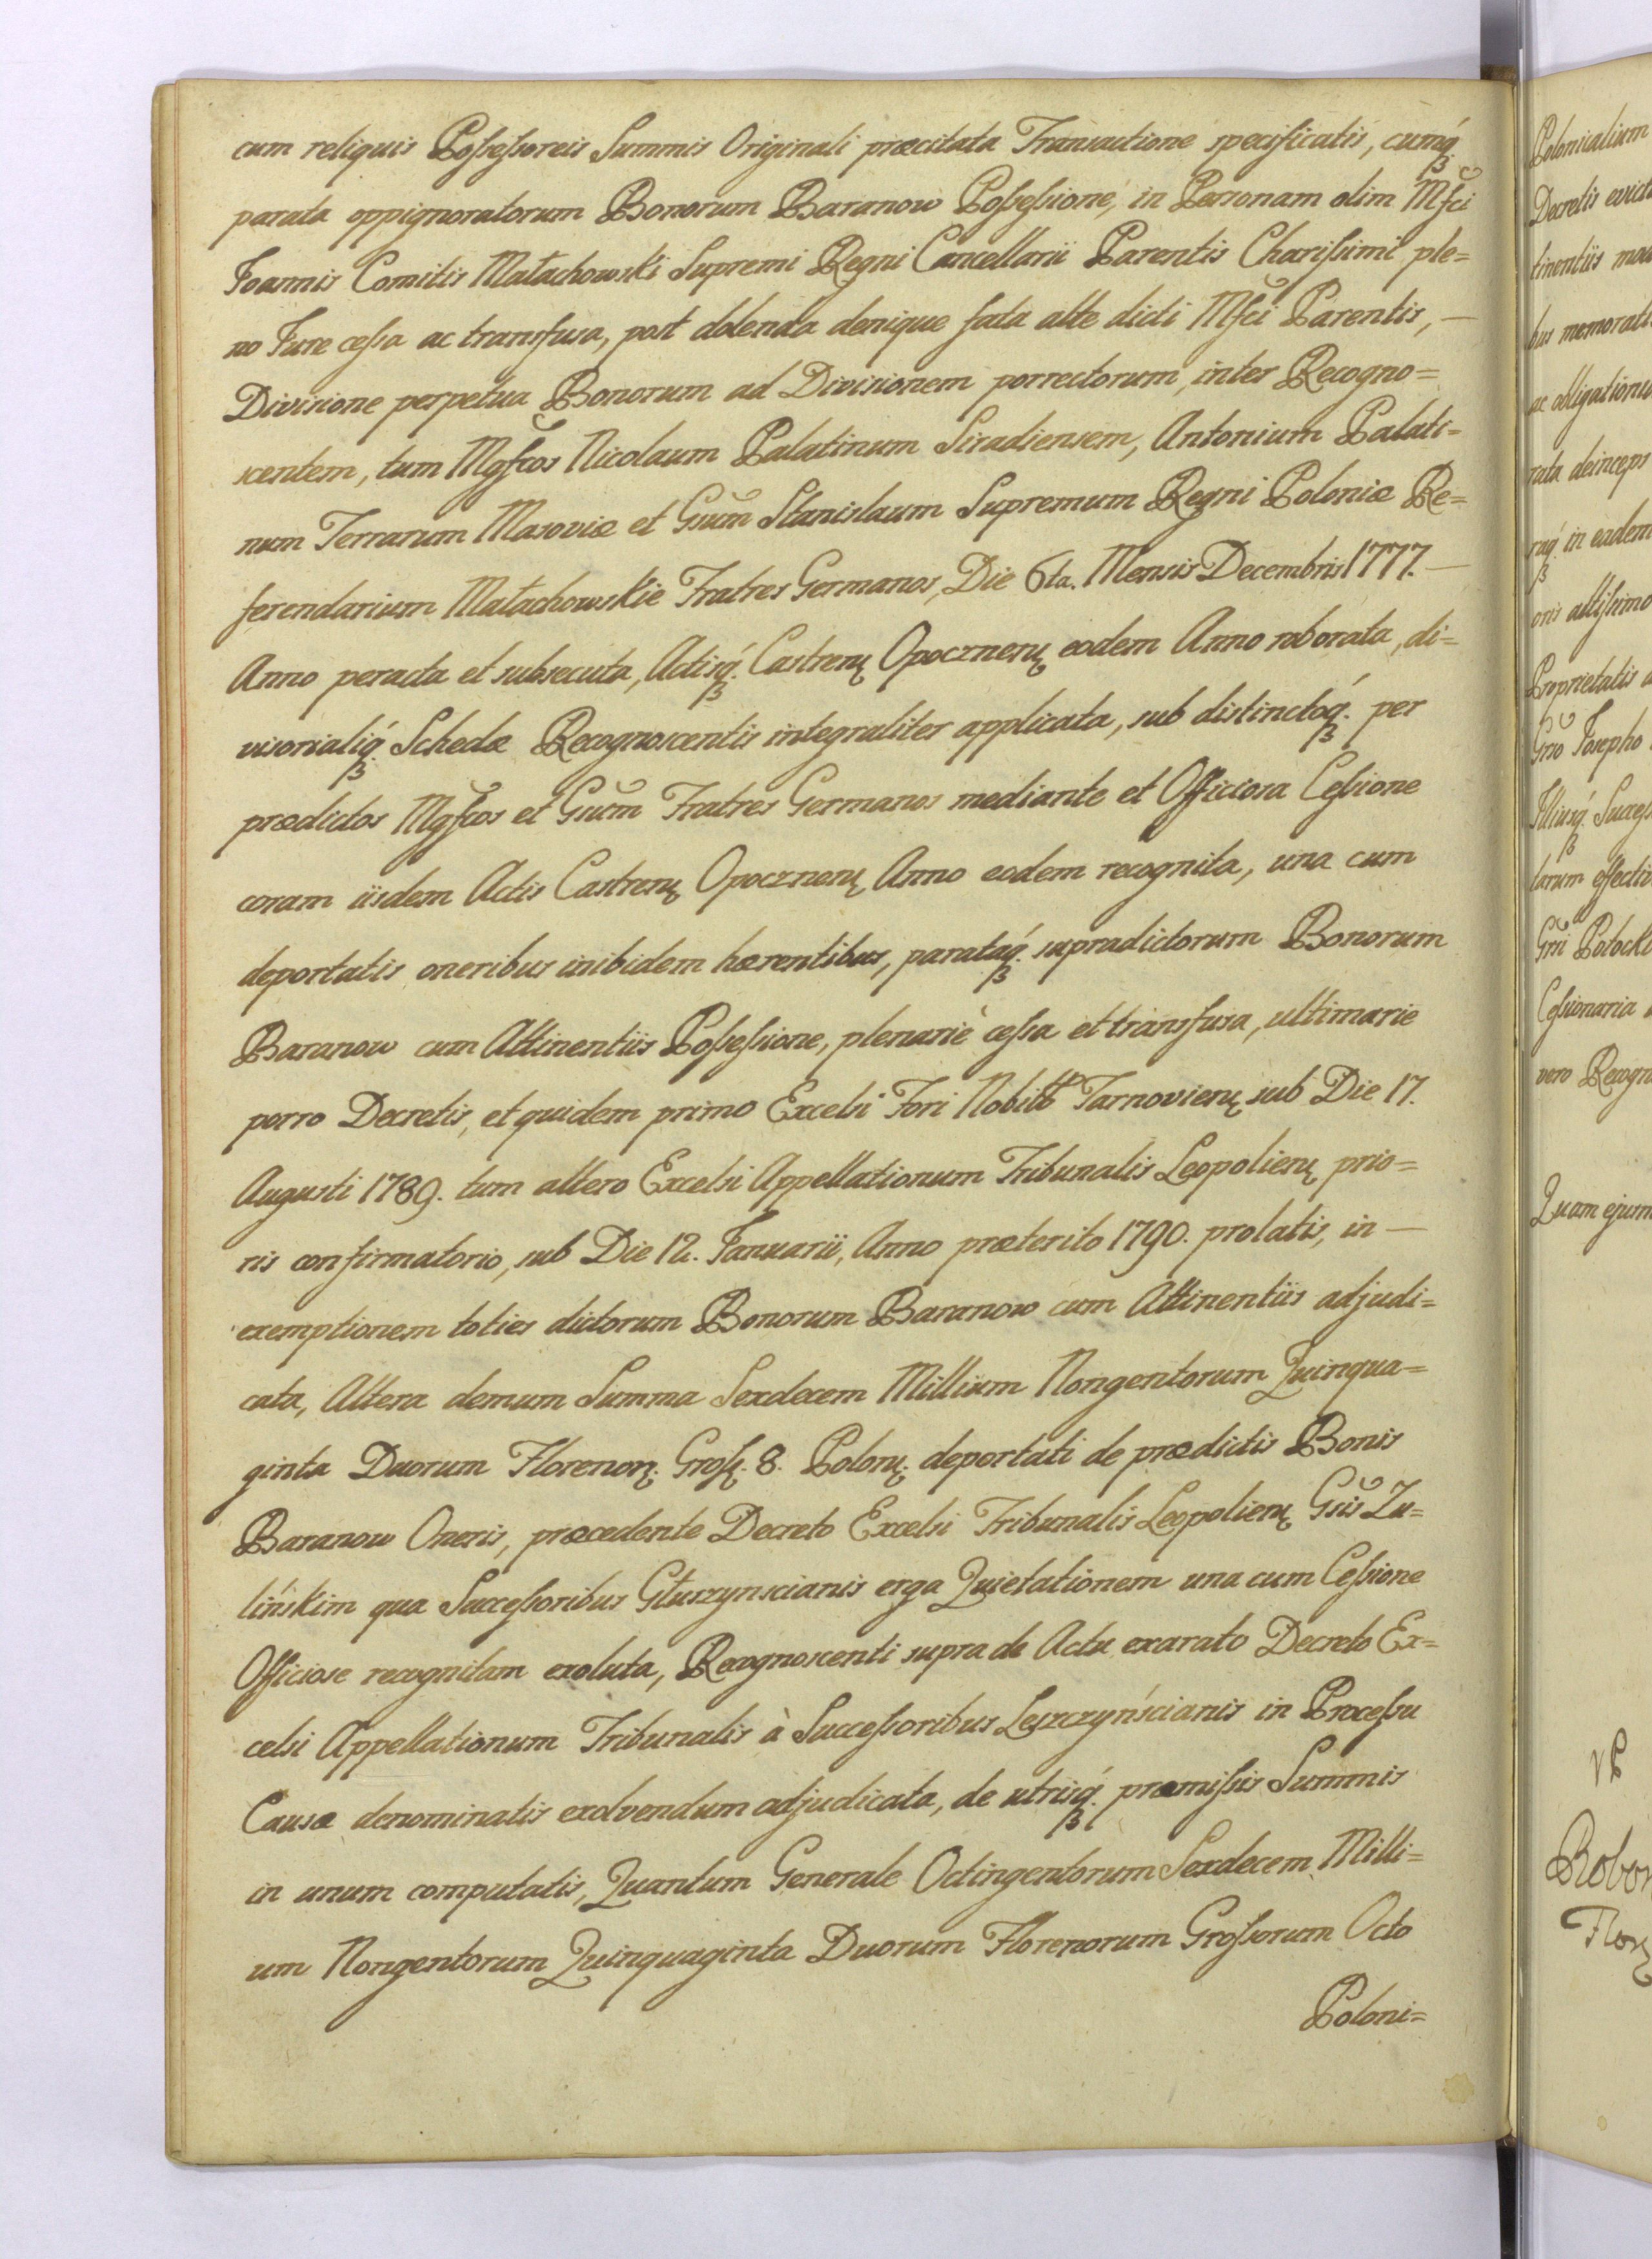 cum reliquis Poſseſsoreis Summis Originali præcitata Transactione specificatis, cumq́ꝫ
parata oppignoratorum Bonorum Baranow Poſseſsione, in Personam olim Mſci
Joannis Comitis Małachowski Supremi Regni Cancellarii Parentis Chariſsimi ple=
no Jure ceſsa ac transfusa, post dolenda denique fata alte dicti Mſci Parentis, —
Divisione perpetua Bonorum ad Divisionem porrectorum, inter Recogno=
scentem, tum Mgſcos Nicolaum Palatinum Siradiensem, Antonium Palati=
num Terrarum Masoviæ et Gsum Stanislaum Supremum Regni Poloniæ Re=
ferendarium Małachowskie Fratres Germanos, Die 6ta. Mensis Decembris 1777. —
Anno peracta et subsecuta, Actisq́ꝫ. Castrenꝫ Opocznenꝫ eodem Anno roborata, di=
visorialiq́ꝫ. Schedæ Recognoscentis integraliter applicata, sub distinctoq́ꝫ. per
prædictos Mgſcos et Gsum Fratres Germanos mediante et Officiosa Ceſsione
coram iisdem Actis Castrenꝫ Opocznenꝫ Anno eodem recognita, una cum
deportatis oneribus inibidem hærentibus, parataq́ꝫ. supradictorum Bonorum
Baranow cum Attinentiis Poſseſsione, plenariè ceſsa et transfusa, ultimarie
porro Decretis, et quidem primo Excelsi Fori Nobilb Tarnovienꝫ sub Die 17.
Augusti 1789. tum altero Excelsi Appellationum Tribunalis Leopolienꝫ prio=
ris confirmatorio, sub Die 12. Januarii, Anno præterito 1790. prolatis, in —
exemptionem toties dictorum Bonorum Baranow cum Attinentiis adjudi=
cata, Altera demum Summa Sexdecem Millium Nongentorum Quinqua=
ginta Duorum Florenorꝫ. Groſꝫ. 8. Polonꝫ. deportati de prædictis Bonis
Baranow Oneris, præcedente Decreto Excelsi Tribunalis Leopolienꝫ Gsis Zu=
lińskim qua Succeſsoribus Głuszynscianis erga Quietationem una cum Ceſsione
Officiose recognitam exoluta, Recognoscenti supra de Actu exarato Decreto Ex=
celsi Appellationum Tribunalis à Succeſsoribus Leszczyńscianis in Proceſsu
Causæ denominatis exolvendum adjudicata, de utrisq́ꝫ. præmiſsis Summis
in unum computatis, Quantum Generale Octingentorum Sexdecem Milli=
um Nongentorum Quinquaginta Duorum Florenorum Groſsorum Octo
Poloni=
Polonicalium
Decretis
tinentiis
bus
ac
rata deinceps
raq́ꝫ in eadem
oris altiſsimo
Proprietatis
Gso Josepho
Illiusq́ꝫ
tarum
Gsi Potocki
Ceſsionaria
vero
Quam